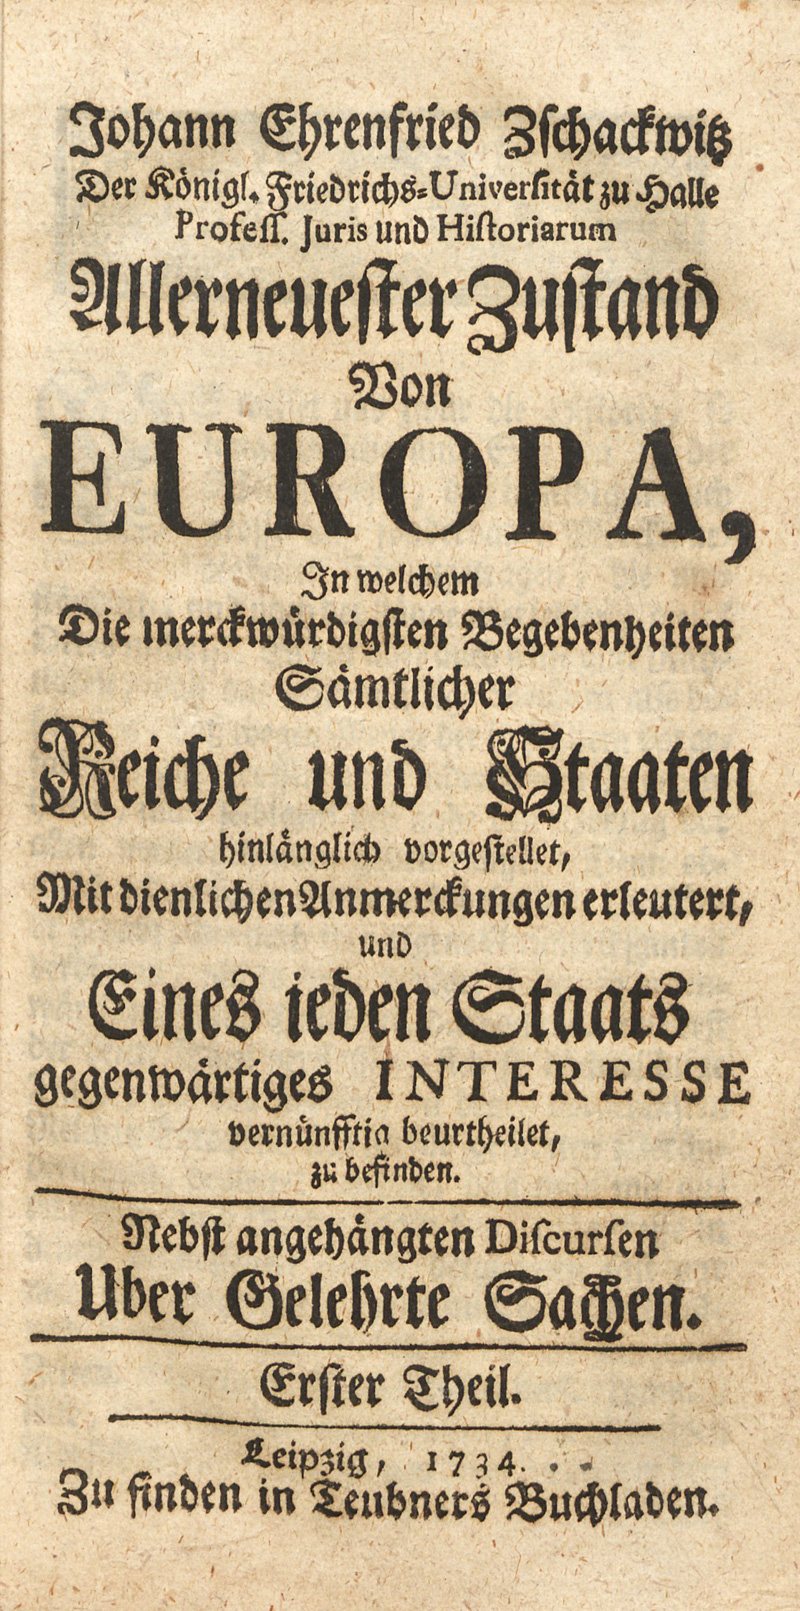 Johann Ehrenfried Zschackwitz
Der Königl. Friedrichs-Universität zu Halle
Profess. Juris und Historiarum
Allerneuester Zustand
Von
EUROPA,
In welchem
Die merckwürdigsten Begebenheiten
Sämtlicher
Reiche und Staaten
hinlänglich vorgestellet,
Mit dienlichen Anmerckungen erleutert,
und
Eines ieden Staats
gegenwärtiges INTERESSE
vernünfftig beurtheilet,
zu befinden.
Nebst angehängten Discursen
Uber Gelehrte Sachen.
Erster Theil.
Leipzig, 1734.
Zu finden in Teubners Buchladen.